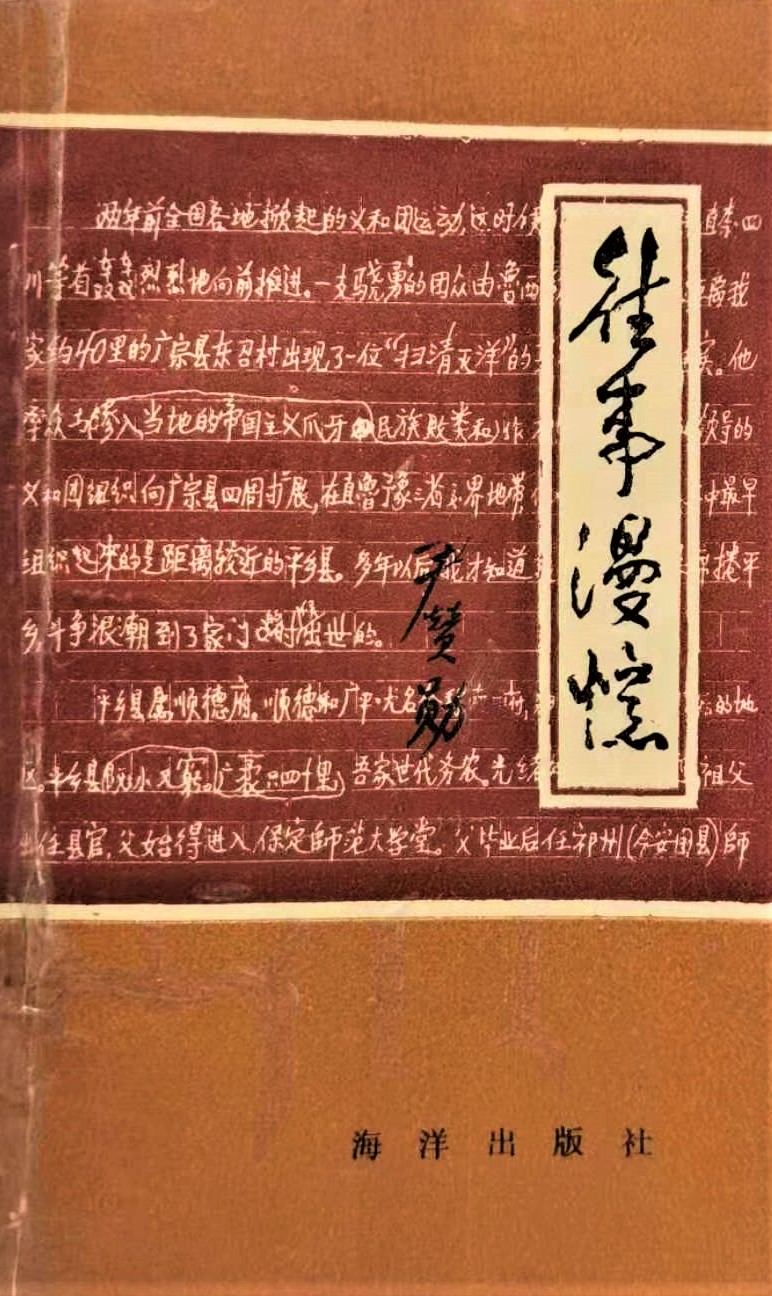 往事漫忆
尹赞勋
两年前全国各地掀起的义和团运动,这时使 直隶、四
川等省轰轰烈烈地向前推进。一支骁勇的团众由鲁西 距离我
家约40里的广宗县东召村出现了一位“扫清灭洋”的 他
群众 掺入当地的帝国主义爪牙 民族败类和 作 领导的
义和团组织向广宗县四周扩展,在直鲁豫三省交界地带, 中最早
组织起来的是距离较近的平乡县。多年以后我才知道 席捲平
乡,斗争浪潮到了家门 时 出世的。
平乡县属顺德府。顺德和广平、大名 府, 的地
区。平乡县既小又穷。广袤只四十里, 吾家世代务农。光绪 祖父
出任县官,父始得进入保定師范大学堂。父毕业后任祁州(今安国县)師
海洋出版社